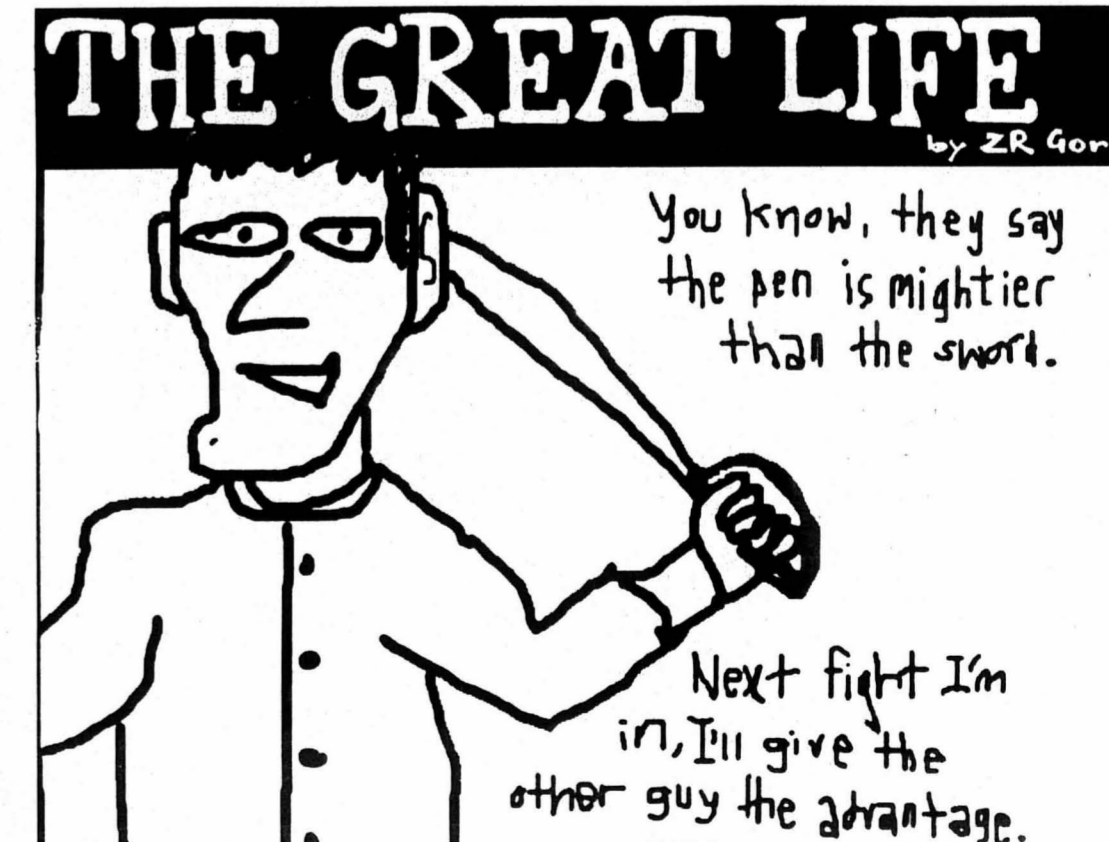 THE GREAT LIFE
by ZR Gor
You know, they say
the pen is mightier
than the sword.
Next fight I'm
in, I'll give the
other guy the advantage.